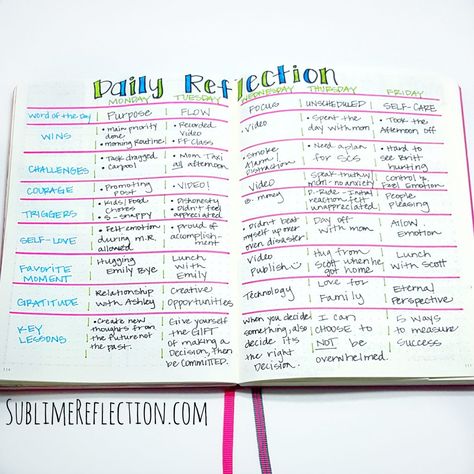 Daily Reflection
MONDAY TUESDAY WEDNESDAY THURSDAY FRIDAY
WORD OF THE DAY Purpose FLOW FOCUS UNSCHEDULED SELF-CARE
WINS
• main priority done
• morning Routine!
• Recorded Video
• FF Class
• Video
• Spent the day with mom
• Took the Afternoon off
CHALLENGES
• Task dragged
• Carpool
• Mom Taxi all afternoon
• Smoke Alarm Distraction
• Need a plan for SCS
• Hard to see Britt hunting
COURAGE
• Promoting Post
VIDEO!
Video
speak truth w/ mom - no anxiety
Control & Fuel Emotion
TRIGGERS
• Kids/Food Choices
• S - Snappy
• Dishonesty
• Didn't feel appreciated
• money
R-Ride - Initial reaction, felt unappreciated
People Pleasing
SELF-LOVE
• Felt emotion during M.R, allowed
• proud of accomplishment
• Didn't beat myself up over disaster
Day off with mom
Allow Emotion
FAVORITE MOMENT
Hugging Emily Bye
Lunch with Emily
Video Publish
Hug from Scott when he got home
Lunch with Scott
GRATITUDE
Relationship with Ashley
Creative Opportunities
Technology
Love for Family
Eternal Perspective
KEY LESSONS
• Create new thoughts from the future not the past.
Give yourself the GIFT of making a Decision, then be COMMITTED.
When you decide something, also decide it's the right Decision.
I can CHOOSE to NOT be overwhelmed.
5 ways to measure success
SUBLIMEREFLECTION.COM